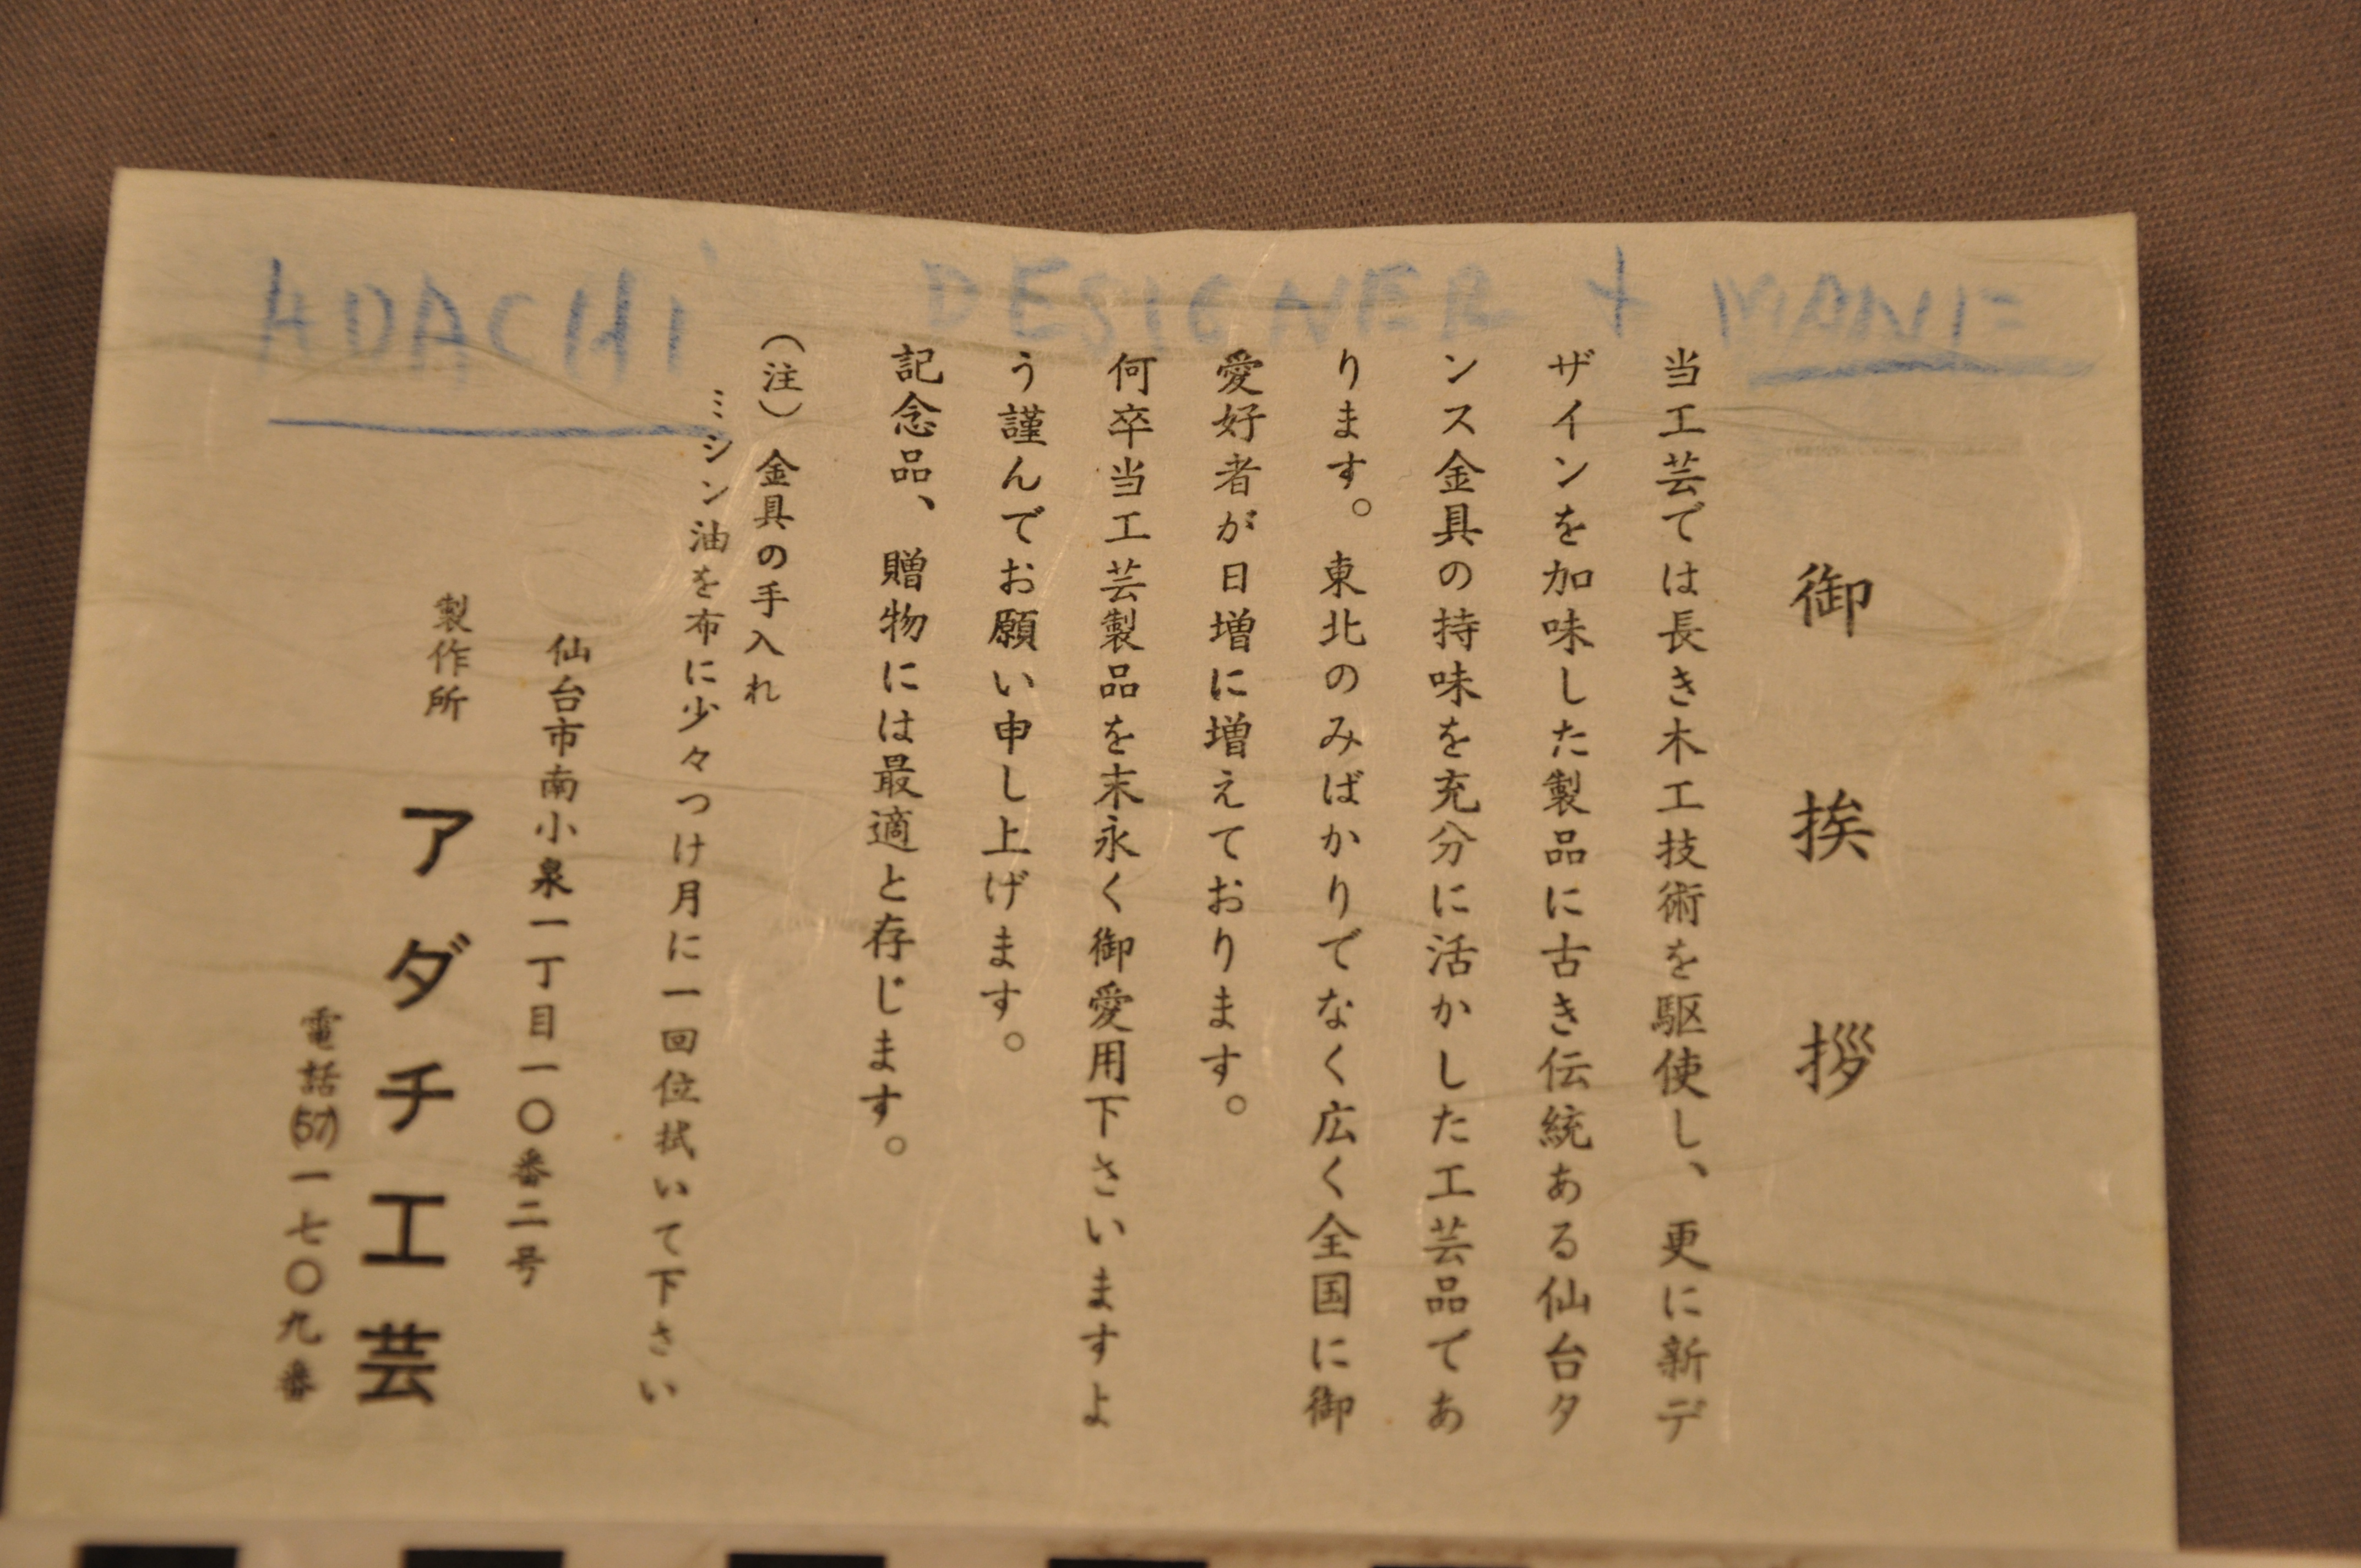 ADACHI DESIGNER + MANF
御挨拶
当工芸では長き木工技術を駆使し、更に新デ
ザインを加味した製品に古き伝統ある仙台タ
ンス金具の持味を充分に活かした工芸品であ
ります。東北のみばかりでなく広く全国に御
愛好者が日増に増えております。
何卒当工芸製品を末永く御愛用下さいますよ
う謹んでお願い申し上げます。
記念品、贈物には最適と存じます。
（注）金具の手入れ
ミシン油を布に少々つけ月に一回位拭いて下さい
仙台市南小泉一丁目一〇番二号
製作所 アダチ工芸
電話(57)一七〇九番